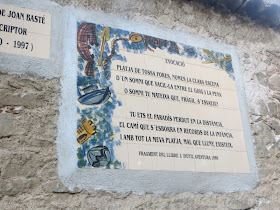 DE JOAN BASTÉ
SCRIPTOR
- 1997)
EVOCACIÓ
PLATJA DE TOSSA FORES, NOMÉS LA CLARA ESCENA
D'UN SOMNI QUE VACIL·LA ENTRE EL GOIG I LA PENA
O SOMNI TU MATEIXA QUE, FRÀGIL, S'ESVAEIX?
TU ETS EL PARADÍS PERDUT EN LA DISTÀNCIA,
EL CAMÍ QUE S'ESBORRA EN RECORDS DE LA INFÀNCIA,
I AMB TOT LA MEVA PLATJA, MAI QUE LLUNY, EXISTEIX.
FRAGMENT DEL LLIBRE
AVENTURA,